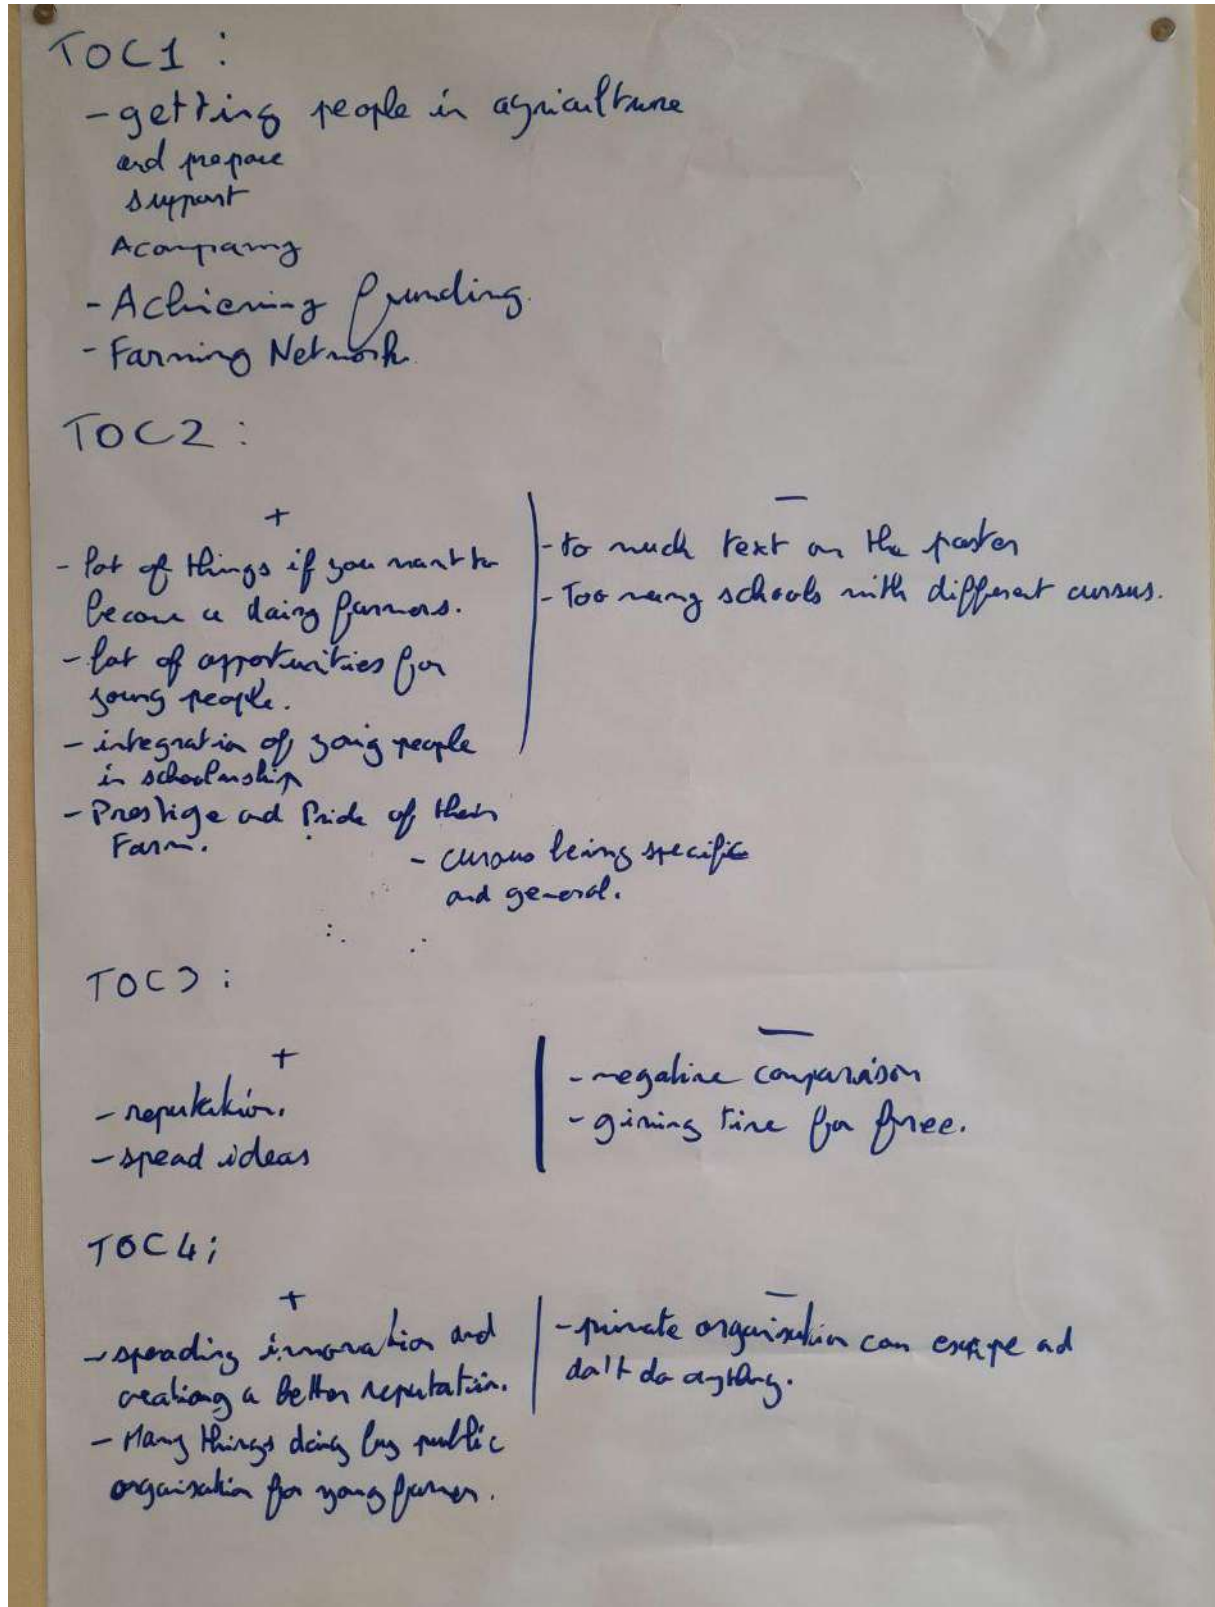 TOC1 :
- getting people in agriculture
and prepare
support
Acompaing
- Achieving funding.
- Farming Network
TOC2 :
+
- lot of things if you want to
become a dairy farmers.
- lot of opportunities for
young people.
- integration of young people
in schoolarship
- Prestige and Pride of their
Farm.
- cursus being specific
and general.
-
- to much text on the poster
- Too many schools with different cursus.
TOC3 :
+
- reputation.
- spread ideas
-
- negative comparaison
- giving time for free.
TOC4 ;
+
- spreading innovation and
creationg a better reputation.
- Many things doing by public
organisation for young farmer.
-
- private organisation can escape and
do't do anything.